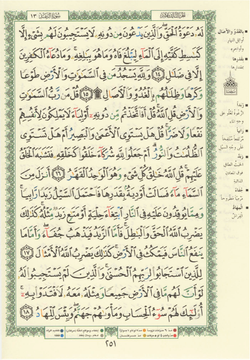 لَهُۥ دَعۡوَةُ ٱلۡحَقِّۚ وَٱلَّذِينَ يَدۡعُونَ مِن دُونِهِۦ لَا يَسۡتَجِيبُونَ لَهُم بِشَيۡءٍ إِلَّا
كَبَٰسِطِ كَفَّيۡهِ إِلَى ٱلۡمَآءِ لِيَبۡلُغَ فَاهُ وَمَا هُوَ بِبَٰلِغِهِۦۚ وَمَا دُعَآءُ ٱلۡكَٰفِرِينَ
إِلَّا فِي ضَلَٰلٖ ١٤ وَلِلَّهِۤ يَسۡجُدُۤ مَن فِي ٱلسَّمَٰوَٰتِ وَٱلۡأَرۡضِ طَوۡعٗا
وَكَرۡهٗا وَظِلَٰلُهُم بِٱلۡغُدُوِّ وَٱلۡأٓصَالِ ۩ ١٥ قُلۡ مَن رَّبُّ ٱلسَّمَٰوَٰتِ
وَٱلۡأَرۡضِ قُلِ ٱللَّهُۚ قُلۡ أَفَٱتَّخَذۡتُم مِّن دُونِهِۦٓ أَوۡلِيَآءَ لَا يَمۡلِكُونَ لِأَنفُسِهِمۡ
نَفۡعٗا وَلَا ضَرّٗاۚ قُلۡ هَلۡ يَسۡتَوِي ٱلۡأَعۡمَىٰ وَٱلۡبَصِيرُ أَمۡ هَلۡ تَسۡتَوِي
ٱلظُّلُمَٰتُ وَٱلنُّورُۗ أَمۡ جَعَلُواْ لِلَّهِ شُرَكَآءَ خَلَقُواْ كَخَلۡقِهِۦ فَتَشَٰبَهَ ٱلۡخَلۡقُ
عَلَيۡهِمۡۚ قُلِ ٱللَّهُ خَٰلِقُ كُلِّ شَيۡءٖ وَهُوَ ٱلۡوَٰحِدُ ٱلۡقَهَّٰرُ ١٦ أَنزَلَ مِنَ
ٱلسَّمَآءِ مَآءٗ فَسَالَتۡ أَوۡدِيَةُۢ بِقَدَرِهَا فَٱحۡتَمَلَ ٱلسَّيۡلُ زَبَدٗا رَّابِيٗاۖ
وَمِمَّا يُوقِدُونَ عَلَيۡهِ فِي ٱلنَّارِ ٱبۡتِغَآءَ حِلۡيَةٍ أَوۡ مَتَٰعٖ زَبَدٞ مِّثۡلُهُۥۚ كَذَٰلِكَ
يَضۡرِبُ ٱللَّهُ ٱلۡحَقَّ وَٱلۡبَٰطِلَۚ فَأَمَّا ٱلزَّبَدُ فَيَذۡهَبُ جُفَآءٗۖ وَأَمَّا مَا
يَنفَعُ ٱلنَّاسَ فَيَمۡكُثُ فِي ٱلۡأَرۡضِۚ كَذَٰلِكَ يَضۡرِبُ ٱللَّهُ ٱلۡأَمۡثَالَ ١٧
لِلَّذِينَ ٱسۡتَجَابُواْ لِرَبِّهِمُ ٱلۡحُسۡنَىٰۚ وَٱلَّذِينَ لَمۡ يَسۡتَجِيبُواْ لَهُۥ
لَوۡ أَنَّ لَهُم مَّا فِي ٱلۡأَرۡضِ جَمِيعٗا وَمِثۡلَهُۥ مَعَهُۥ لَٱفۡتَدَوۡاْ بِهِۦٓۚ
أُوْلَٰٓئِكَ لَهُمۡ سُوٓءُ ٱلۡحِسَابِ وَمَأۡوَىٰهُمۡ جَهَنَّمُۖ وَبِئۡسَ ٱلۡمِهَادُ ١٨
٢٥١